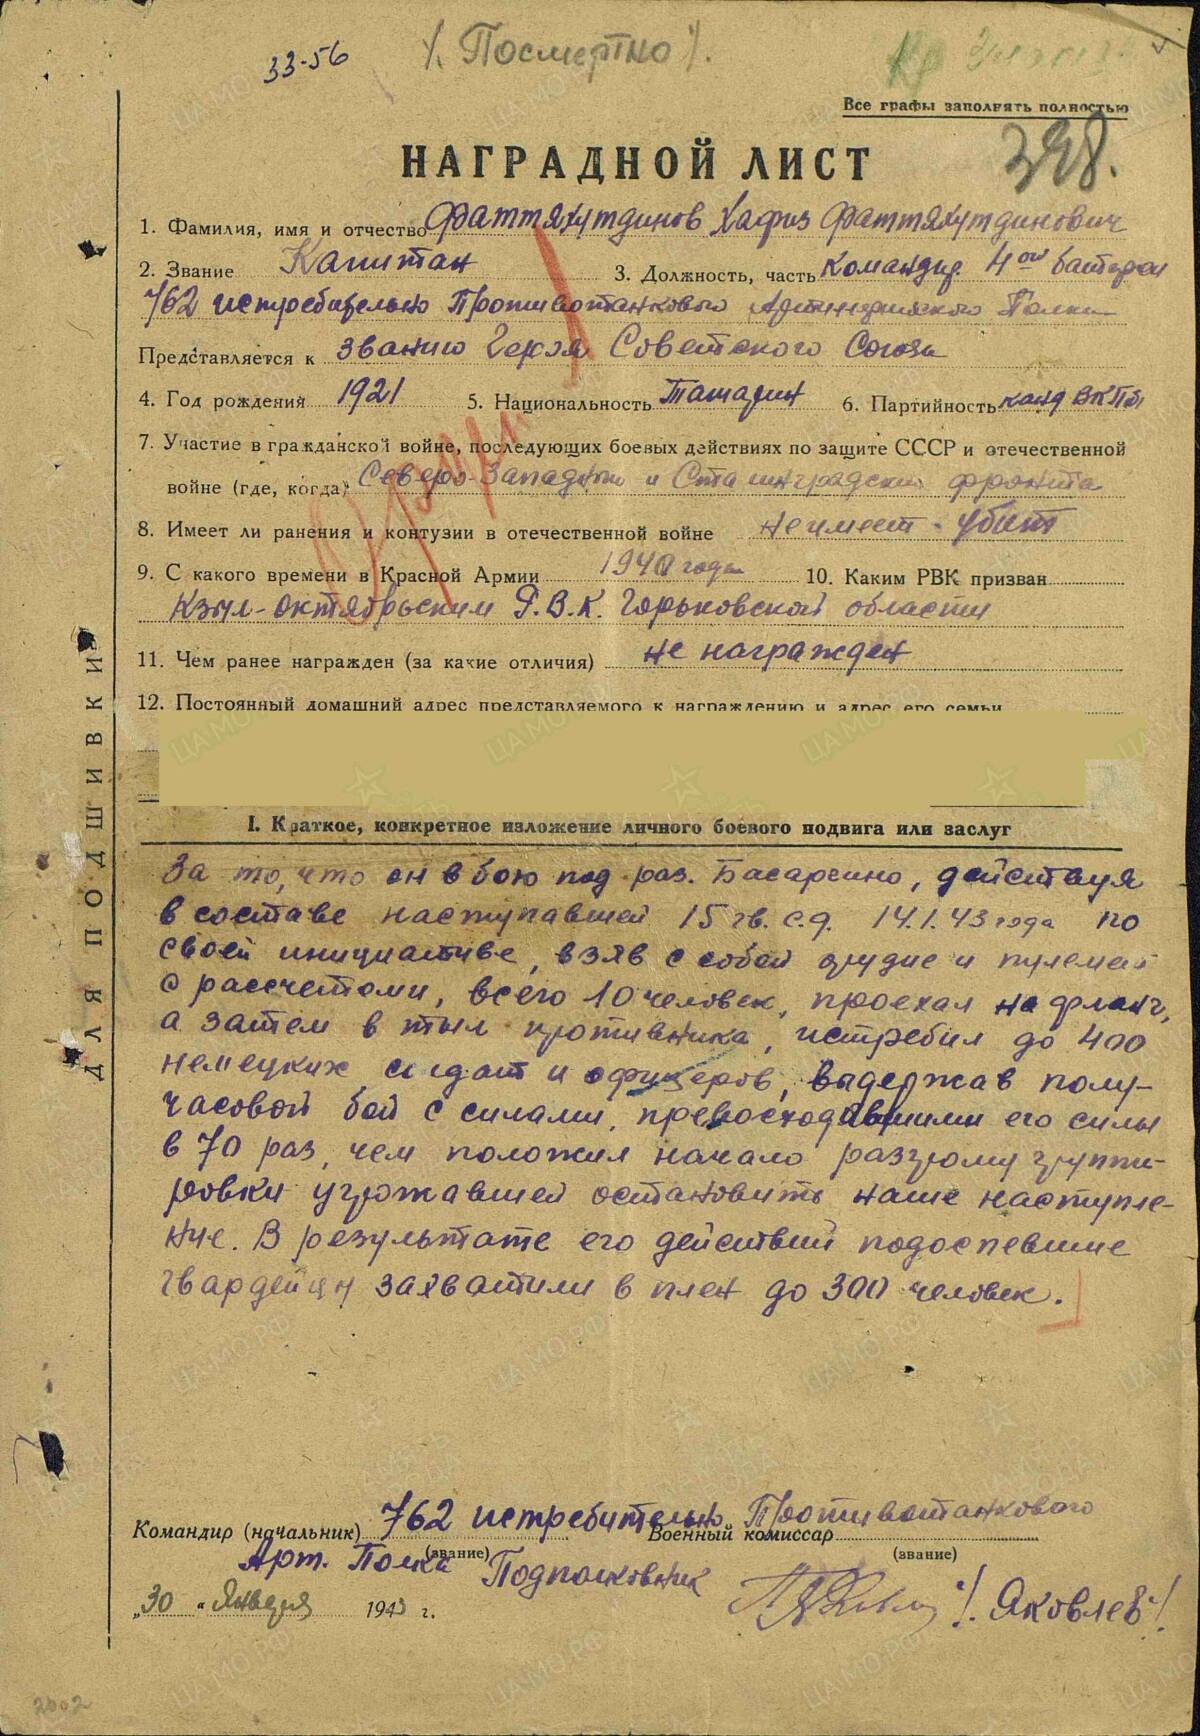 33-56
/. Посмертно /.
Все графы заполнять полностью
398.
НАГРАДНОЙ ЛИСТ
1. Фамилия, имя и отчество Фаттяхутдинов Хафиз Фаттяхутдинович
2. Звание Капитан 3. Должность, часть командир 4ой батареи
762 истребительно Противотанкового Артиллерийского Полка
Представляется к званию Героя Советского Союза
4. Год рождения 1921 5. Национальность Татарин 6. Партийность канд ВКПб
7. Участие в гражданской войне, последующих боевых действиях по защите СССР и отечественной
войне (где, когда) Северо-Западный и Сталинградский фронта
8. Имеет ли ранения и контузии в отечественной войне не имеет - убит
9. С какого времени в Красной Армии 1940 года 10. Каким РВК призван
Кзыл-октябрьским Р.В.К. Горьковской области
11. Чем ранее награжден (за какие отличия) не награжден
12. Постоянный домашний адрес представляемого к награждению и адрес его семьи
I. Краткое, конкретное изложение личного боевого подвига или заслуг
За то, что он в бою под раз. Басаргино, действуя
в составе наступавшей 15 гв. с.д. 14.1.43 года по
своей инициативе, взяв с собой орудие и пулемет
с рассчетами, всего 10 человек, проехал на фланг,
а затем в тыл противника, истребил до 400
немецких солдат и офицеров, выдержав полу-
часовой бой с силами, превосходившими его силы
в 70 раз, чем положил начало разгрому группи-
ровки угрожавшей остановить наше наступле-
ние. В результате его действий подоспевшие
гвардейцы захватили в плен до 300 человек.
Командир (начальник) 762 истребительно Противотанкового
Военный комиссар
(звание) (звание)
Арт. Полка Подполковник /. Яковлев /.
„30 “ Января 1943 г.
ДЛЯ ПОДШИВКИ
2002
ЦАМО.РФ